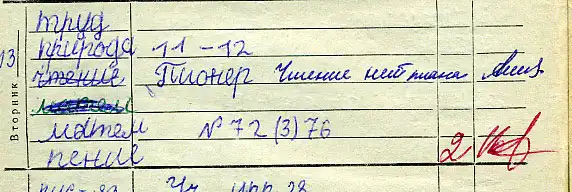 13
Вторник
труд
природа 11-12
чтение Пионер Чтение нет плана
матем № 72 (3) 76
пение 2